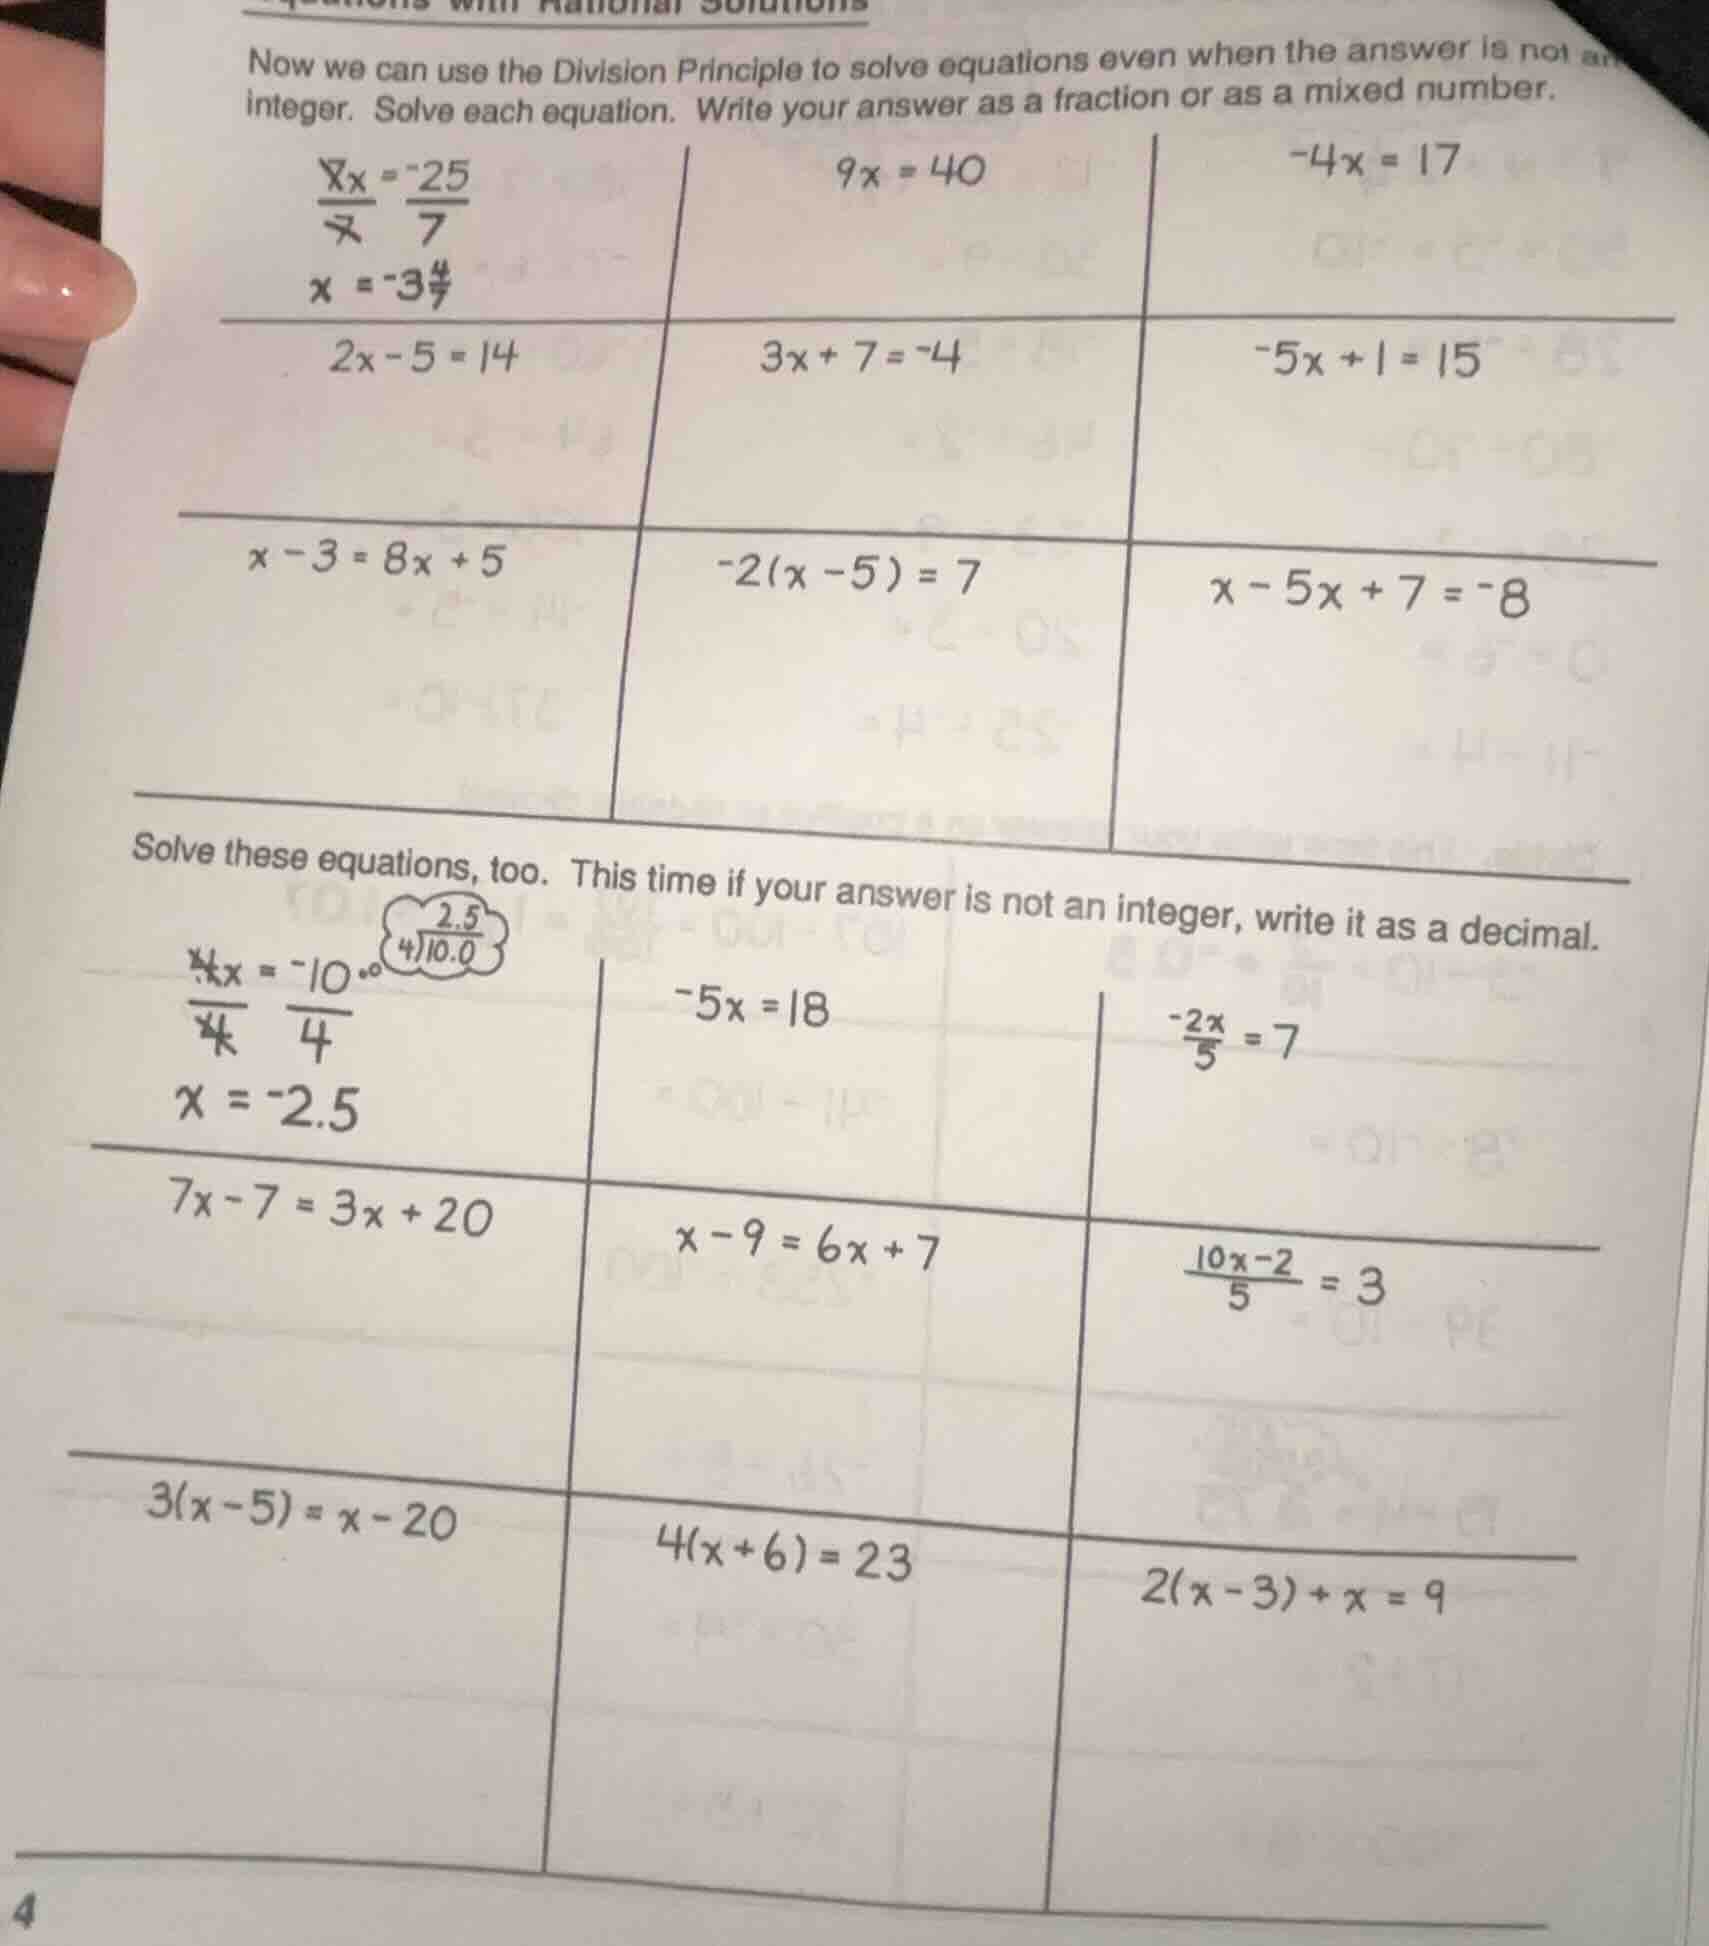 Equations with Rational Solutions
Now we can use the Division Principle to solve equations even when the answer is not an
integer. Solve each equation. Write your answer as a fraction or as a mixed number.
7x/7 = ⁻25/7
x = ⁻3 4/7
9x = 40
⁻4x = 17
2x - 5 = 14
3x + 7 = ⁻4
⁻5x + 1 = 15
x - 3 = 8x + 5
⁻2(x - 5) = 7
x - 5x + 7 = ⁻8
Solve these equations, too. This time if your answer is not an integer, write it as a decimal.
4x/4 = ⁻10/4
2.5
4)10.0
x = ⁻2.5
⁻5x = 18
⁻2x/5 = 7
7x - 7 = 3x + 20
x - 9 = 6x + 7
10x - 2/5 = 3
3(x - 5) = x - 20
4(x + 6) = 23
2(x - 3) + x = 9
4